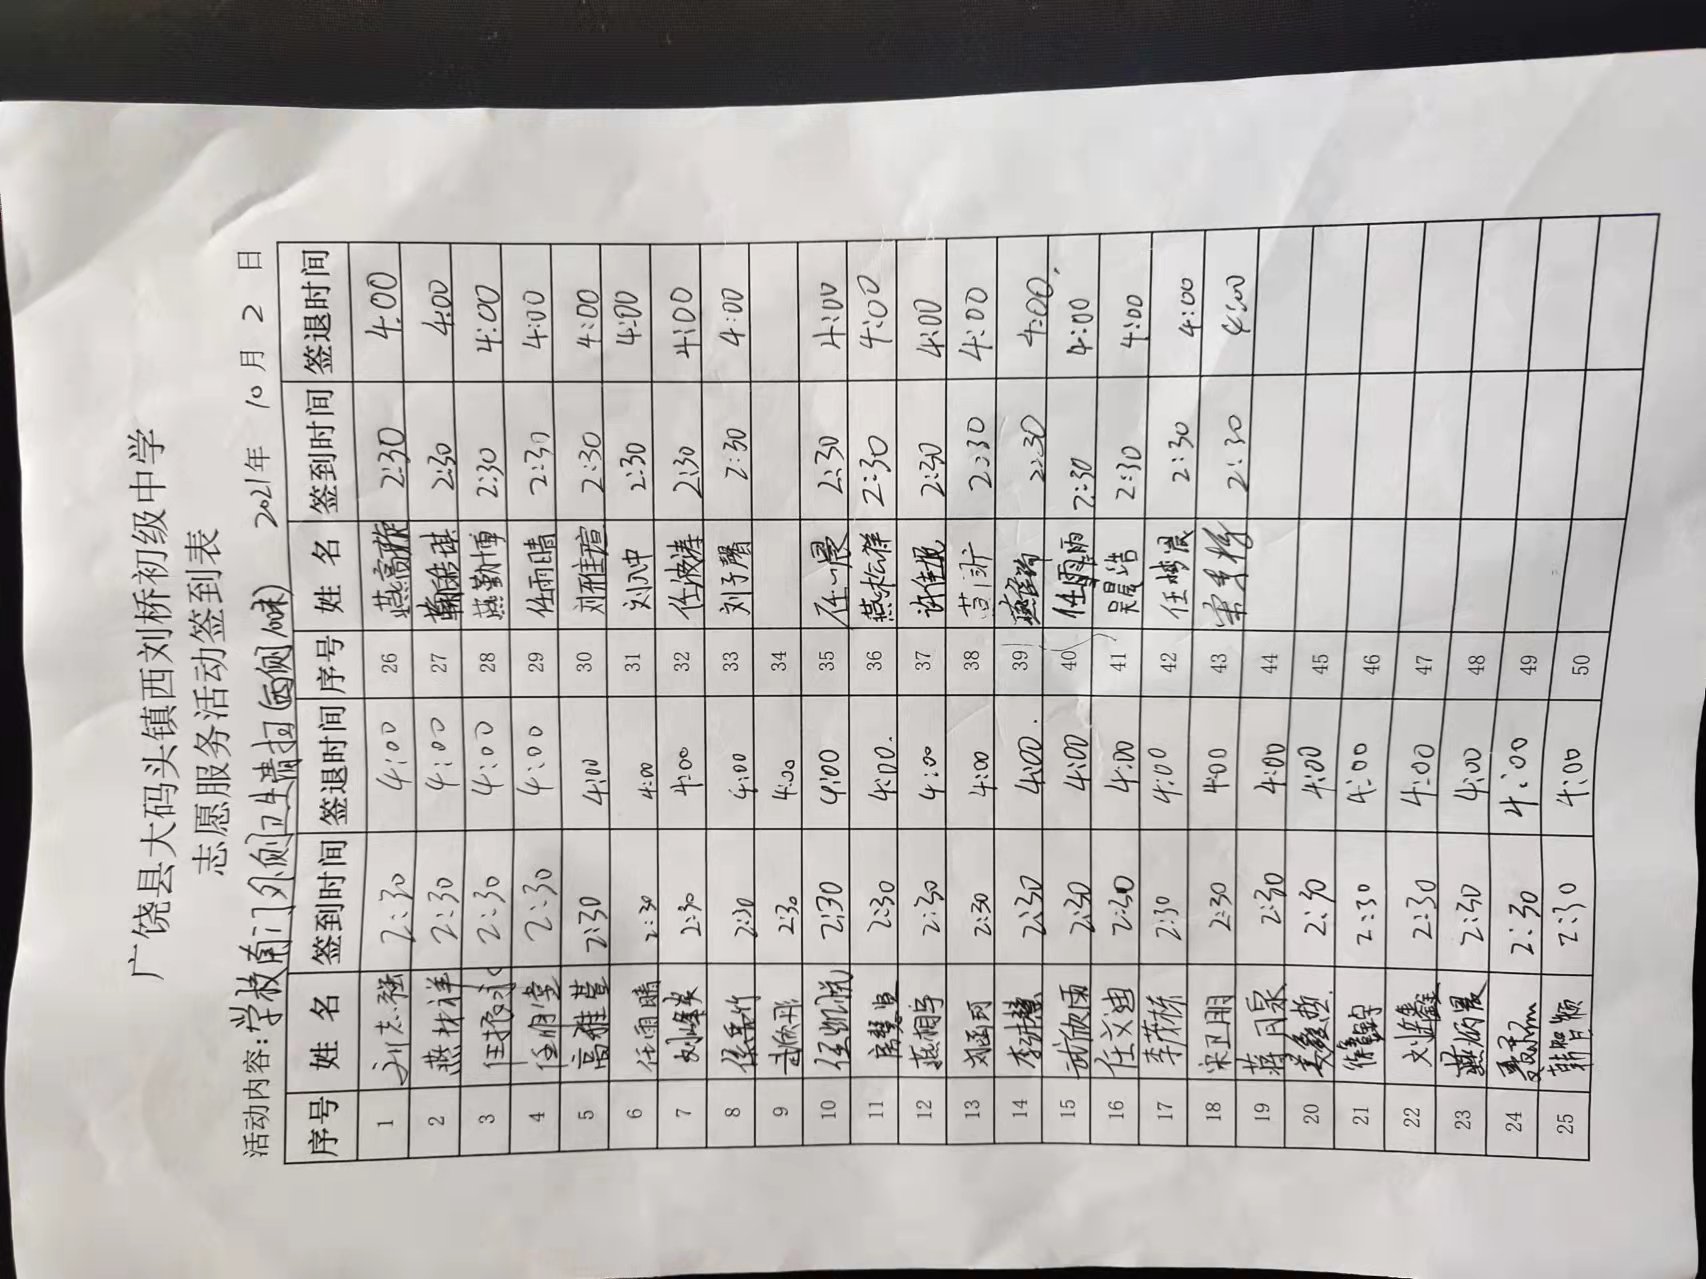 广饶县大码头镇西刘桥初级中学
志愿服务活动签到表
活动内容:学校南门外侧卫生清扫(西侧 2021年 10月 2 日
序号 姓 名 签到时间 签退时间 序号 姓 名 签到时间 签退时间
1 刘志强 2:30 4:00 26 燕 2:30 4:00
2 燕 祥 2:30 4:00 27 2:30 4:00
3 任振 2:30 4:00 28 燕勤博 2:30 4:00
4 任明堂 2:30 4:00 29 任雨晴 2:30 4:00
5 高雅萱 2:30 4:00 30 刘雅瑄 2:30 4:00
6 任雨晴 2:30 4:00 31 刘 中 2:30 4:00
7 刘峰 2:30 4:00 32 任波涛 2:30 4:00
8 2:30 4:00 33 刘子馨 2:30 4:00
9 武欣彤 2:30 4:00 34
10 任凯悦 2:30 4:00 35 任一晨 2:30 4:00
11 2:30 4:00 36 燕 群 2:30 4:00
12 燕相宇 2:30 4:00 37 许佳 2:30 4:00
13 刘 2:30 4:00 38 2:30 4:00
14 李 慧 2:30 4:00. 39 2:30 4:00
15 武欣雨 2:30 4:00 40 任 雨 2:30 4:00
16 任文迪 2:30 4:00 41 吴浩 2:30 4:00
17 李 栋 2:30 4:00 42 任梦晨 2:30 4:00
18 宋卫朋 2:30 4:00 43 2:30 4:00
19 蒋月 2:30 4:00 44
20 2:30 4:00 45
21 2:30 4:00 46
22 刘 鑫 2:30 4:00 47
23 燕炳晨 2:30 4:00 48
24 聂 2:30 4:00 49
25 韩智颖 2:30 4:00 50